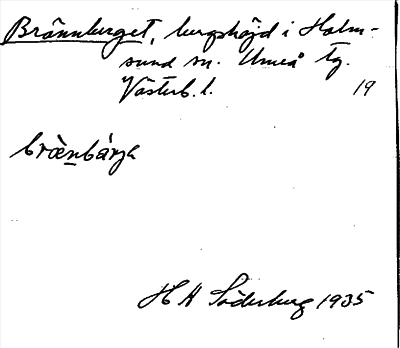 Brännberget, bergshöjd i Holm-
sund sn. Umeå tg.
Västerb. l. 19
bræ̀nbárjə
H A Söderberg 1935